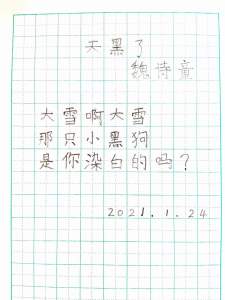 天黑了
魏诗童
大雪啊大雪
那只小黑狗
是你染白的吗？
2021.1.24